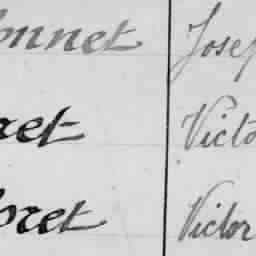 onnet Josep
ret Victo
oret Victor